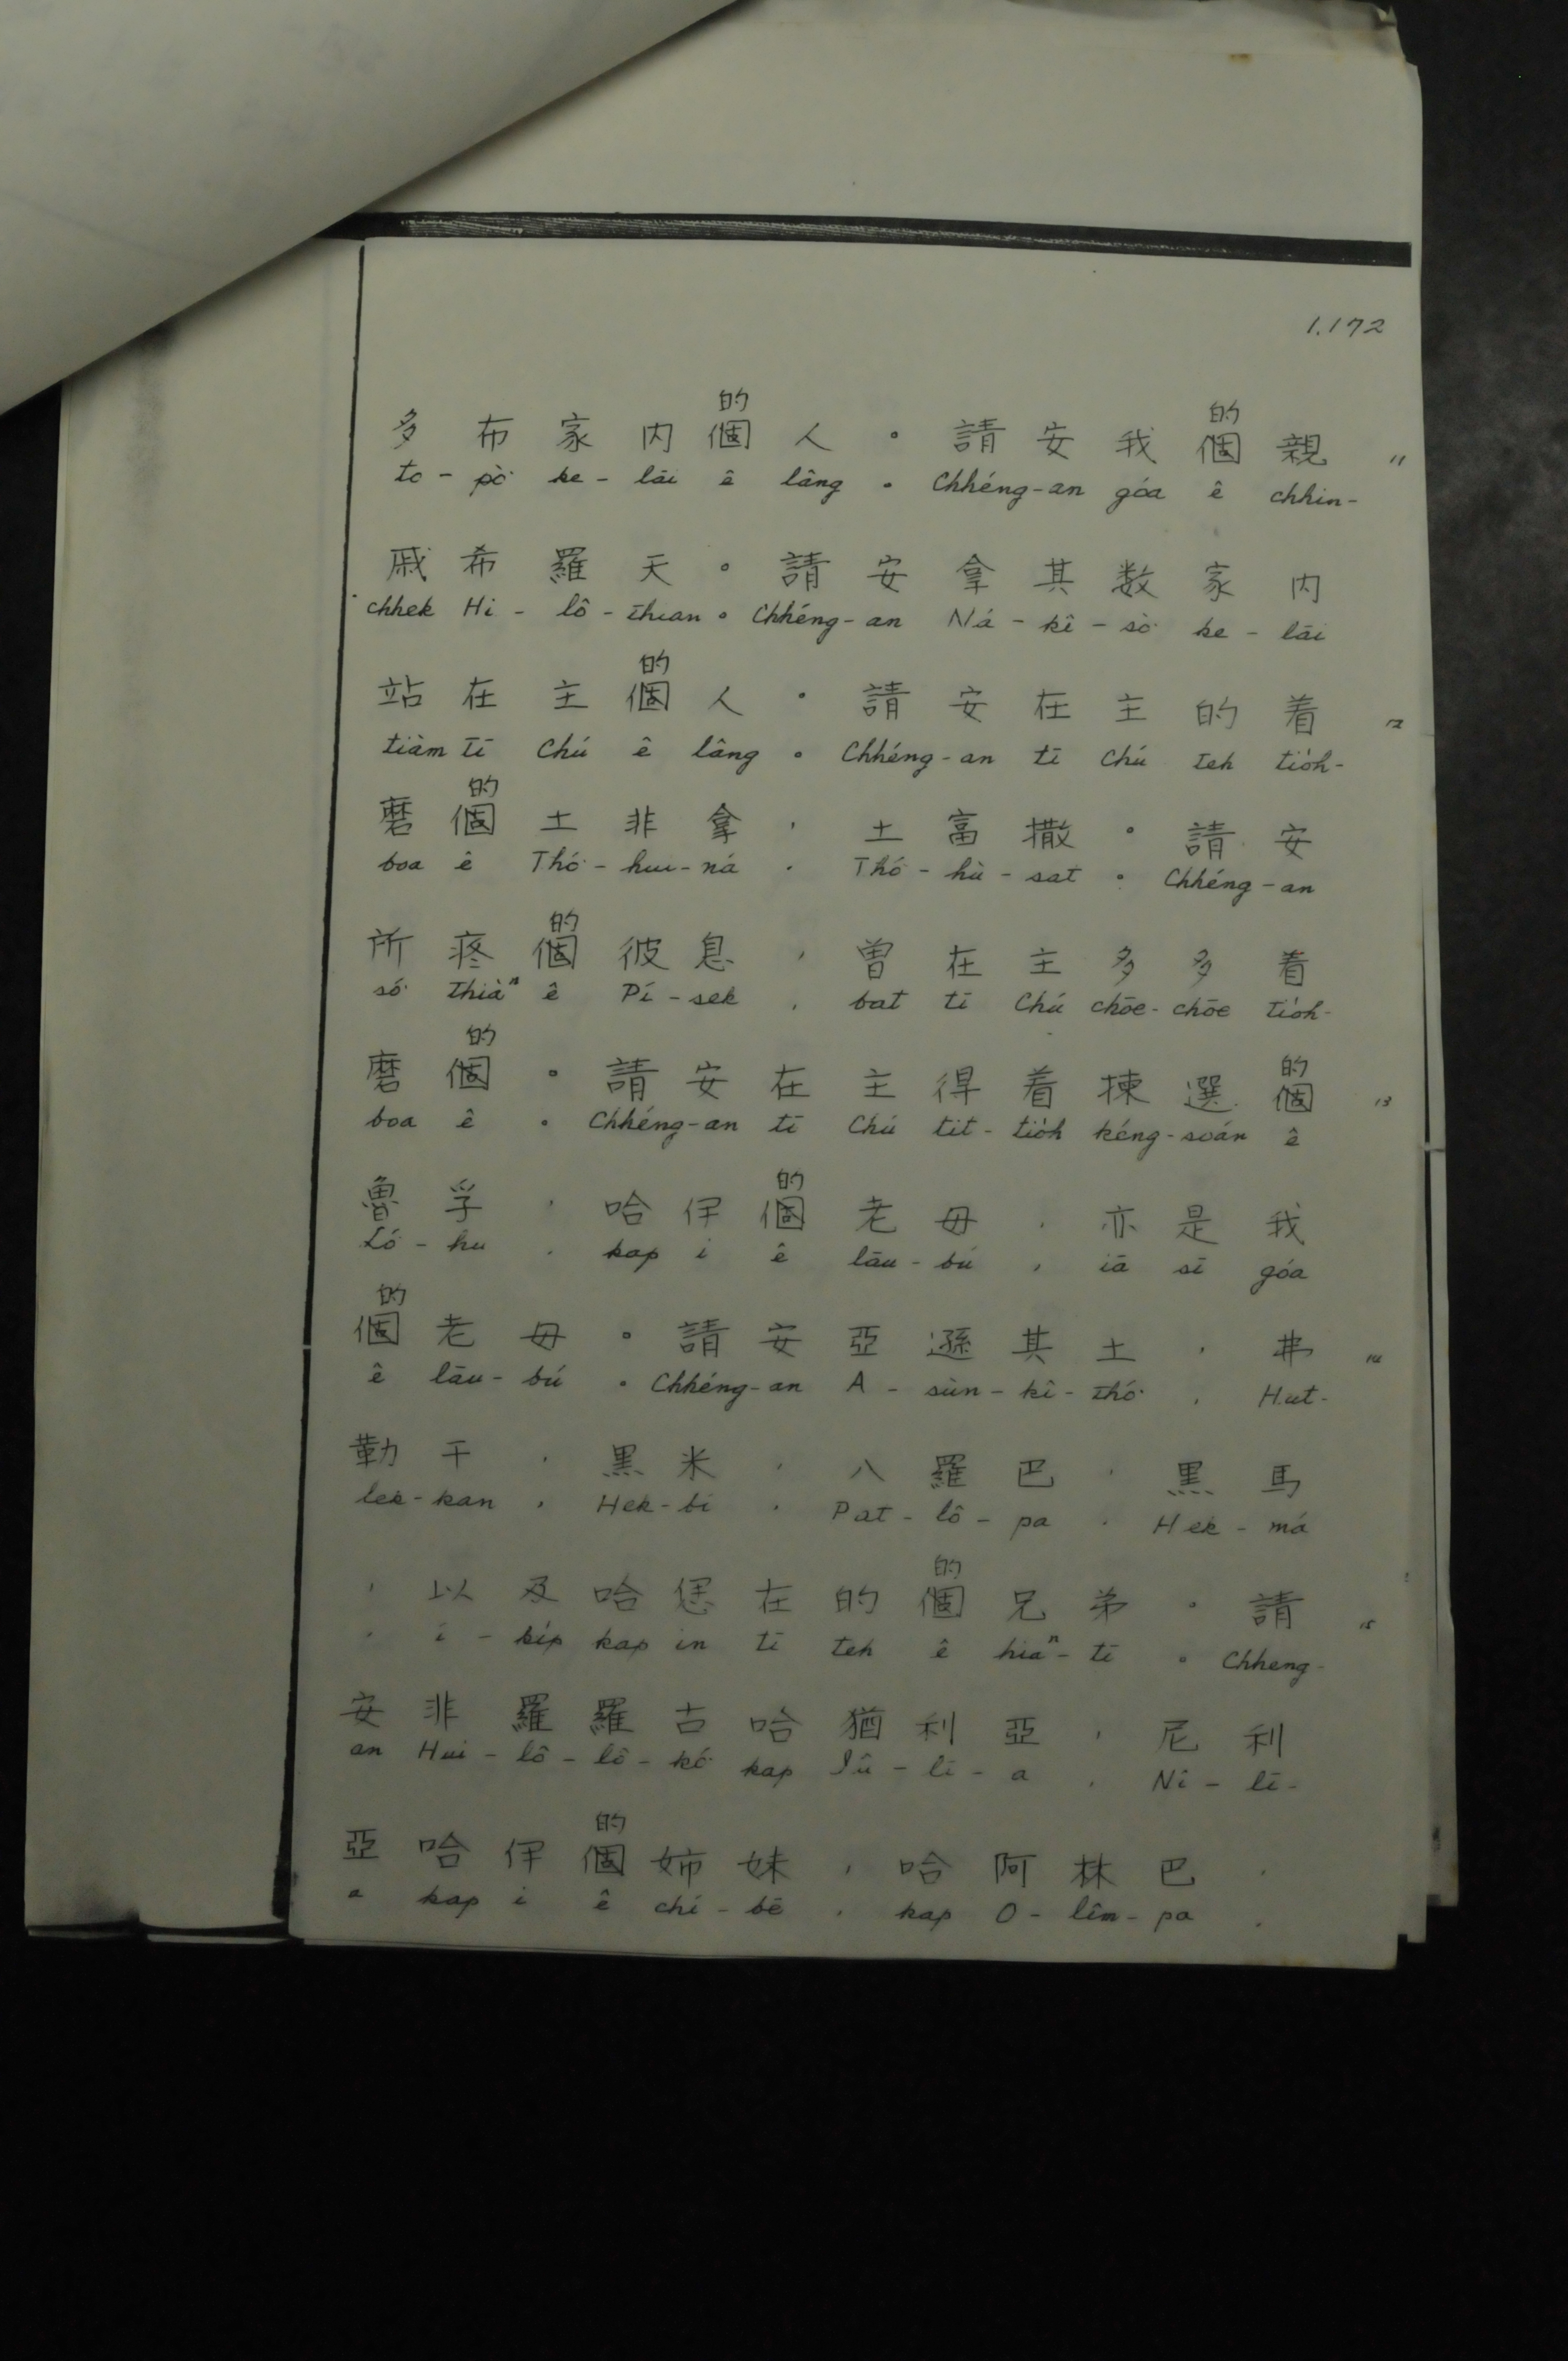 1.172
的 的
多 布 家 内 個 人 。 請 安 我 個 親 11
to - pò͘ ke - lāi ê lâng 。 Chhéng-an góa ê chhin-
戚 希 羅 天 。 請 安 拿 其 数 家 内
chhek Hi - lô - thian 。 Chhéng-an Ná - kî - sò͘ ke - lāi
的
站 在 主 個 人 。 請 安 在 主 的 着 12
tiàm tī Chú ê lâng 。 Chhéng-an tī Chú teh tio̍h-
的
磨 個 土 非 拿 , 土 富 撒 。 請 安
boa ê Thó͘ - hui - ná , Thó͘ - hù - sat 。 Chhéng-an
的
所 疼 個 彼 息 , 曽 在 主 多 多 着
só͘ thiàⁿ ê Pí - sek , bat tī Chú chōe - chōe tio̍h-
的 的
磨 個 。 請 安 在 主 得 着 揀 選 個 13
boa ê 。 Chhéng-an tī Chú tit - tio̍h kéng-soán ê
的
魯 孚 , 哈 伊 個 老 母 , 亦 是 我
Ló͘ - hu , kap i ê lāu - bú , iā sī góa
的
個 老 母 。 請 安 亞 遜 其 土 , 弗 14
ê lāu - bú 。 Chhéng-an A - sùn - kî - thó͘ , Hut-
勒 干 , 黒 米 , 八 羅 巴 , 黒 馬
lek - kan , Hek - bí , Pat - lô - pa , Hek - má
的
, 以 及 哈 恁 在 的 個 兄 弟 。 請 15
, í - ki̍p kap in tī teh ê hiaⁿ - tī 。 Chheng-
安 非 羅 羅 古 哈 猶 利 亞 , 尼 利
an Hui - lô - lô - kó͘ kap Iû - lī - a , Nî - lī-
的
亞 哈 伊 個 姉 妹 , 哈 阿 林 巴 ,
a kap i ê chí - bē , kap O - lîm - pa ,